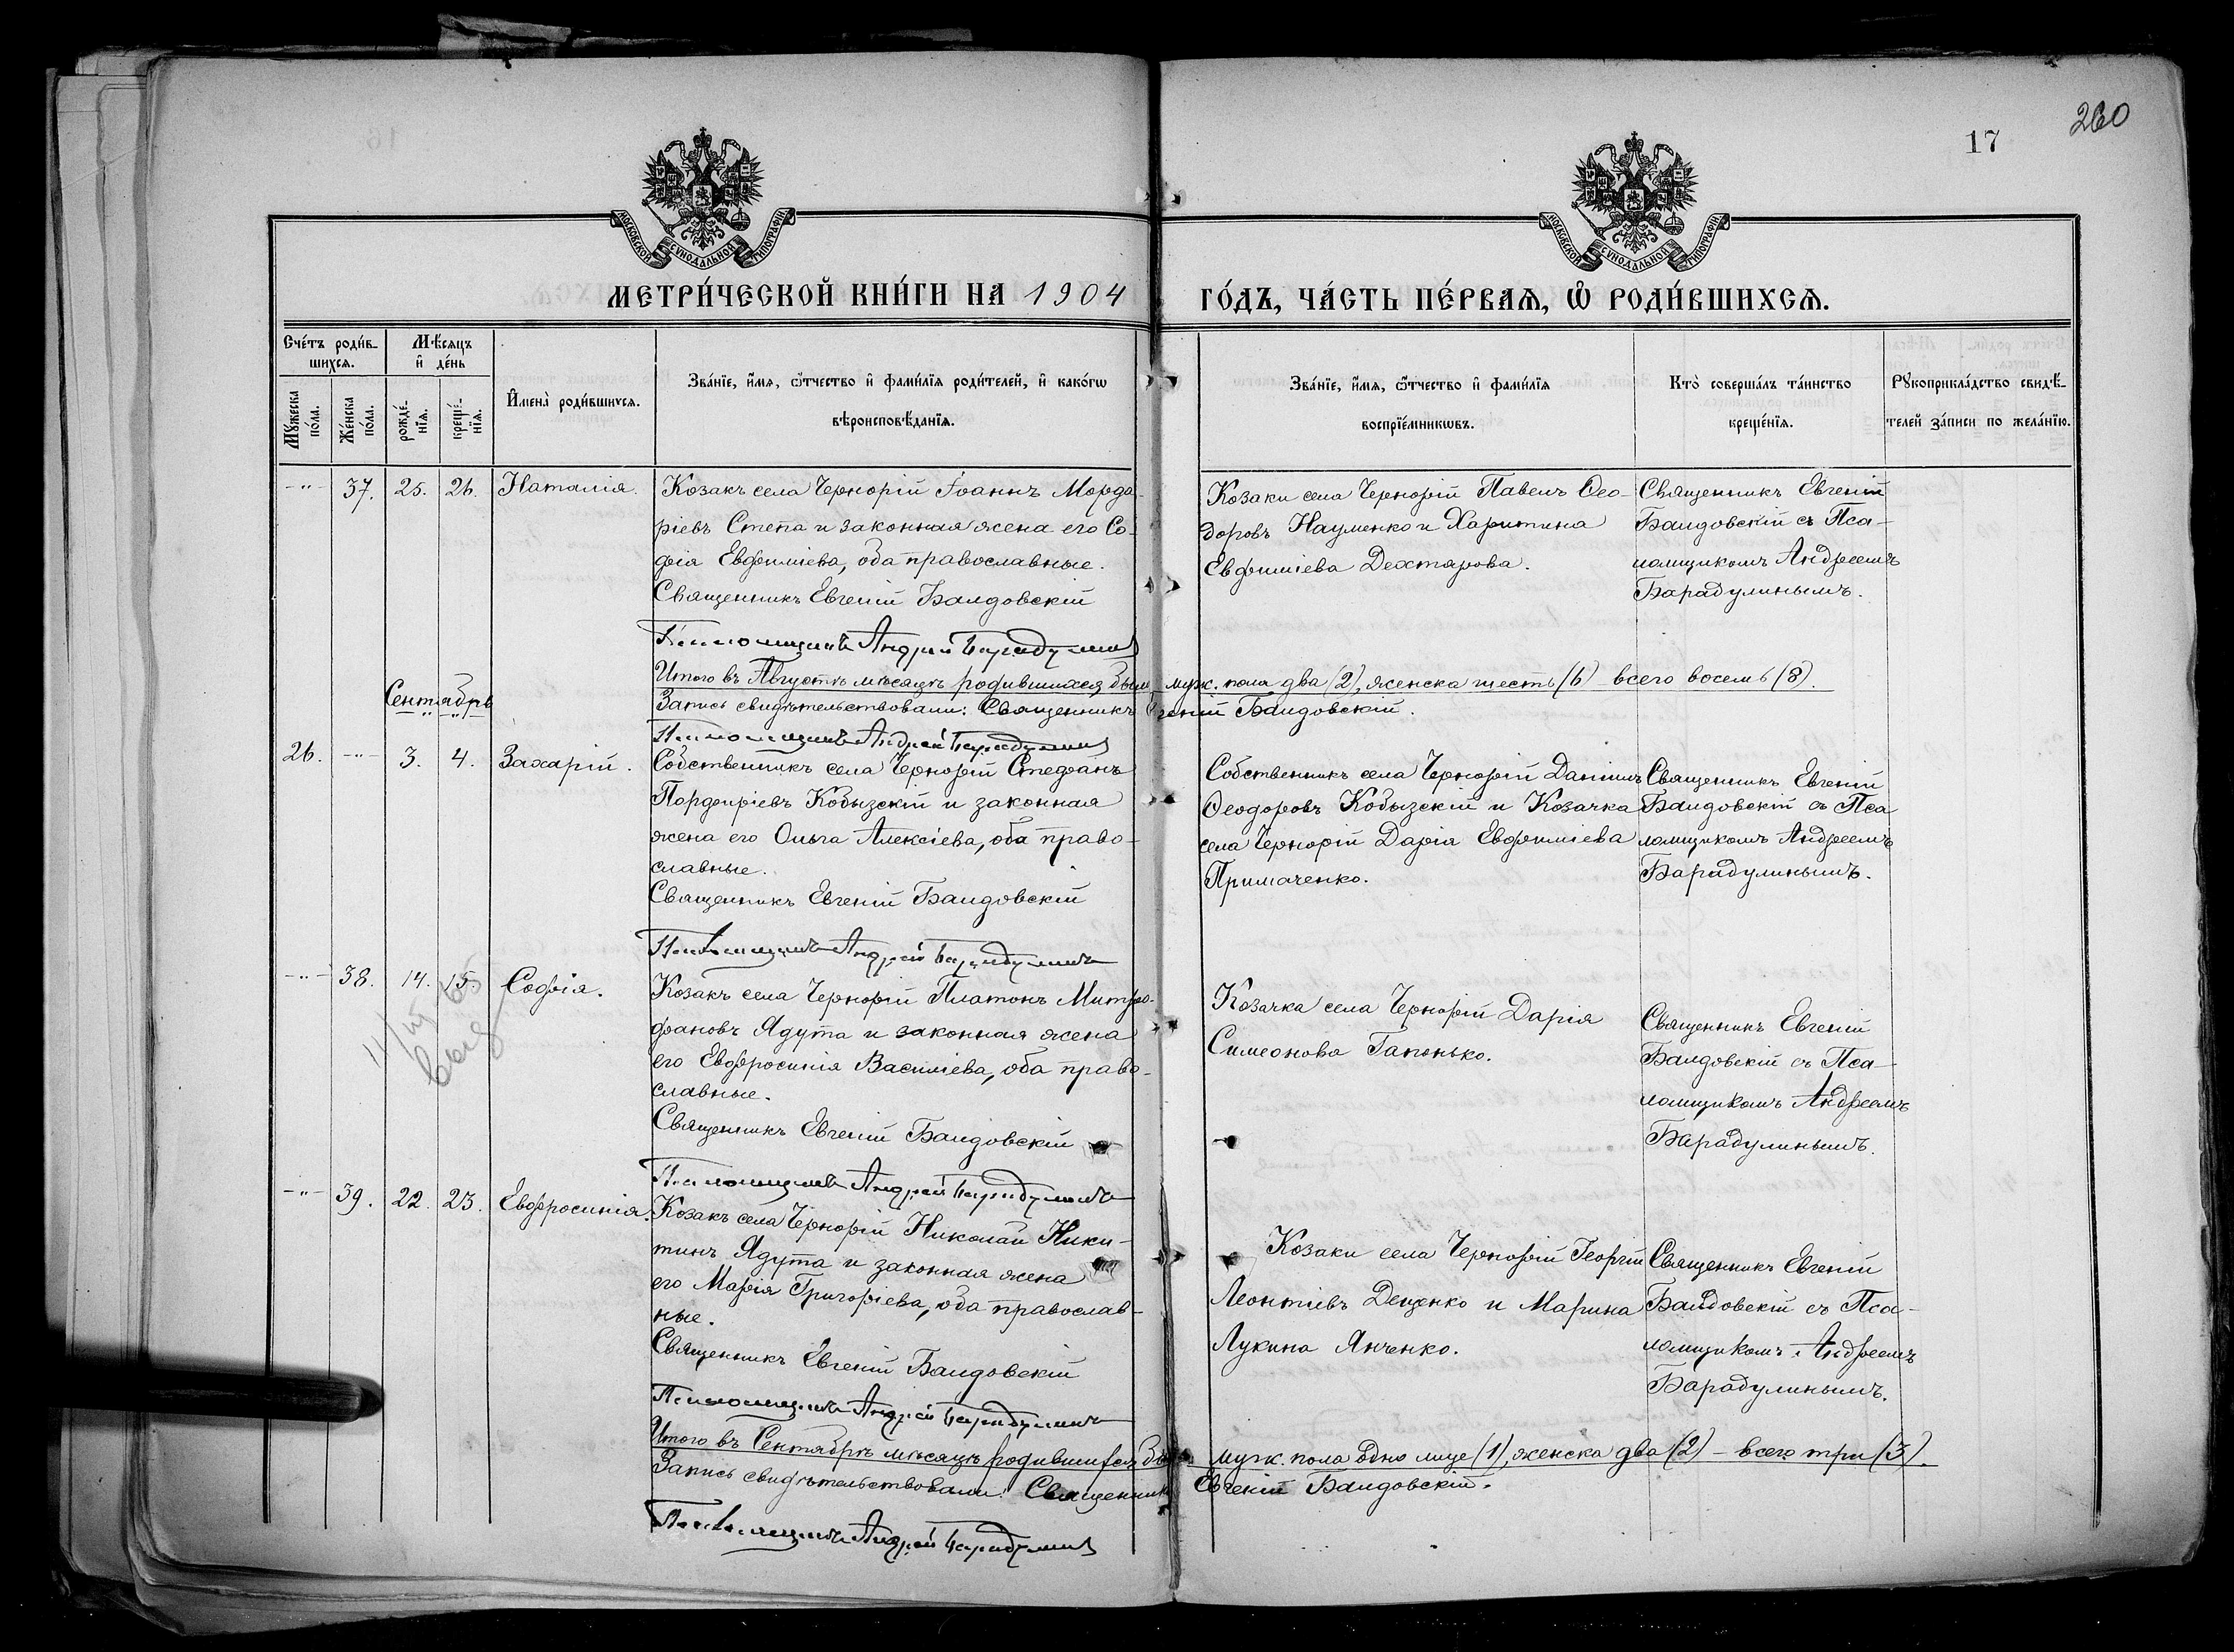 260
17
МОСКОВСКОЙ СѴНОДАЛЬНОЙ ТИПОГРАФІИ
МОСКОВСКОЙ СѴНОДАЛЬНОЙ ТИПОГРАФІИ
МЕТРИ́ЧЕСКОЙ КНИ́ГИ НА 1904 ГО́ДЪ, ЧА́СТЬ ПЕ́РВАѦ, Ѽ РОДИ́ВШИХСѦ.
Сче́тъ роди́в-
шихсѧ.
Мѣ́сѧцъ
и҆ де́нь
Мꙋ́жеска
по́ла.
Же́нска
по́ла.
рожде́-
нїѧ.
креще́-
нїѧ.
И҆мена̀ роди́вшихсѧ.
Зва́нїе, и҆́мѧ, ѻ҆́тчество и҆ фами́лїѧ роди́телей, и҆ како́гѡ
вѣроисповѣ́данїѧ.
Зва́нїе, и҆́мѧ, ѻ҆́тчество и҆ фами́лїѧ
воспрїе́мникѡвъ.
Кто̀ соверша́лъ та́инство
креще́нїѧ.
Рꙋкоприкла́дство свидѣ́-
телей за́писи по жела́нїю.
-"- 37. 25. 26. Наталія.
Козакъ села Чернорій Іоаннъ Марда-
ріевъ Степа и законная жена его Со-
фія Евфиміева, оба православные.
Священникъ Евгеній Баидовскій
Псаломщикъ Андрей Барадулинъ
Козаки села Чернорій Павелъ Ѳео-
доровъ Науменко и Харитина
Евфиміева Дехтярова.
Священникъ Евгеній
Баидовскій съ Пса-
ломщикомъ Андреемъ
Барадулинымъ.
Итого въ Августѣ мѣсяцѣ родившихся было муж. пола два (2), женска шесть (6) – всего восемь (8).
Запись свидѣтельствовали: Священникъ Евгеній Баидовскій.
Псаломщикъ Андрей Барадулинъ
Сентябрь
26. -"- 3. 4. Захарій.
Собственникъ села Чернорій Стефанъ
Порфиріевъ Кобызскій и законная
жена его Ольга Алексіева, оба право-
славные.
Священникъ Евгеній Баидовскій
Псаломщикъ Андрей Барадулинъ
Собственникъ села Чернорій Даніилъ
Ѳеодоровъ Кобызскій и Козачка
села Чернорій Дарія Евфиміева
Примаченко.
Священникъ Евгеній
Баидовскій съ Пса
ломщикомъ Андреемъ
Барадулинымъ.
-"- 38. 14. 15. Софія.
Козакъ села Чернорій Платонъ Митро-
фановъ Ядута и законная жена
его Евфросинія Василіева, оба право-
славные.
Священникъ Евгеній Баидовскій
Псаломщикъ Андрей Барадулинъ
Козачка села Чернорій Дарія
Симеонова Гапонько.
Священникъ Евгеній
Баидовскій съ Пса-
ломщикомъ Андреемъ
Барадулинымъ.
-"- 39. 22. 23. Евфросинія.
Козакъ села Чернорій Николай Ники-
тинъ Ядута и законная жена
его Марія Григоріева, оба православ-
ные.
Священникъ Евгеній Баидовскій
Псаломщикъ Андрей Барадулинъ
Козаки села Чернорій Георгій
Леонтіевъ Деценко и Марина
Лукина Янченко.
Священникъ Евгеній
Баидовскій съ Пса-
ломщикомъ Андреемъ
Барадулинымъ.
Итого въ Сентябрѣ мѣсяцѣ родившихся муж. пола одно лице (1), женска два (2) – всего три (3).
Запись свидѣтельствовали: Священникъ Евгеній Баидовскій.
Псаломщикъ Андрей Барадулинъ